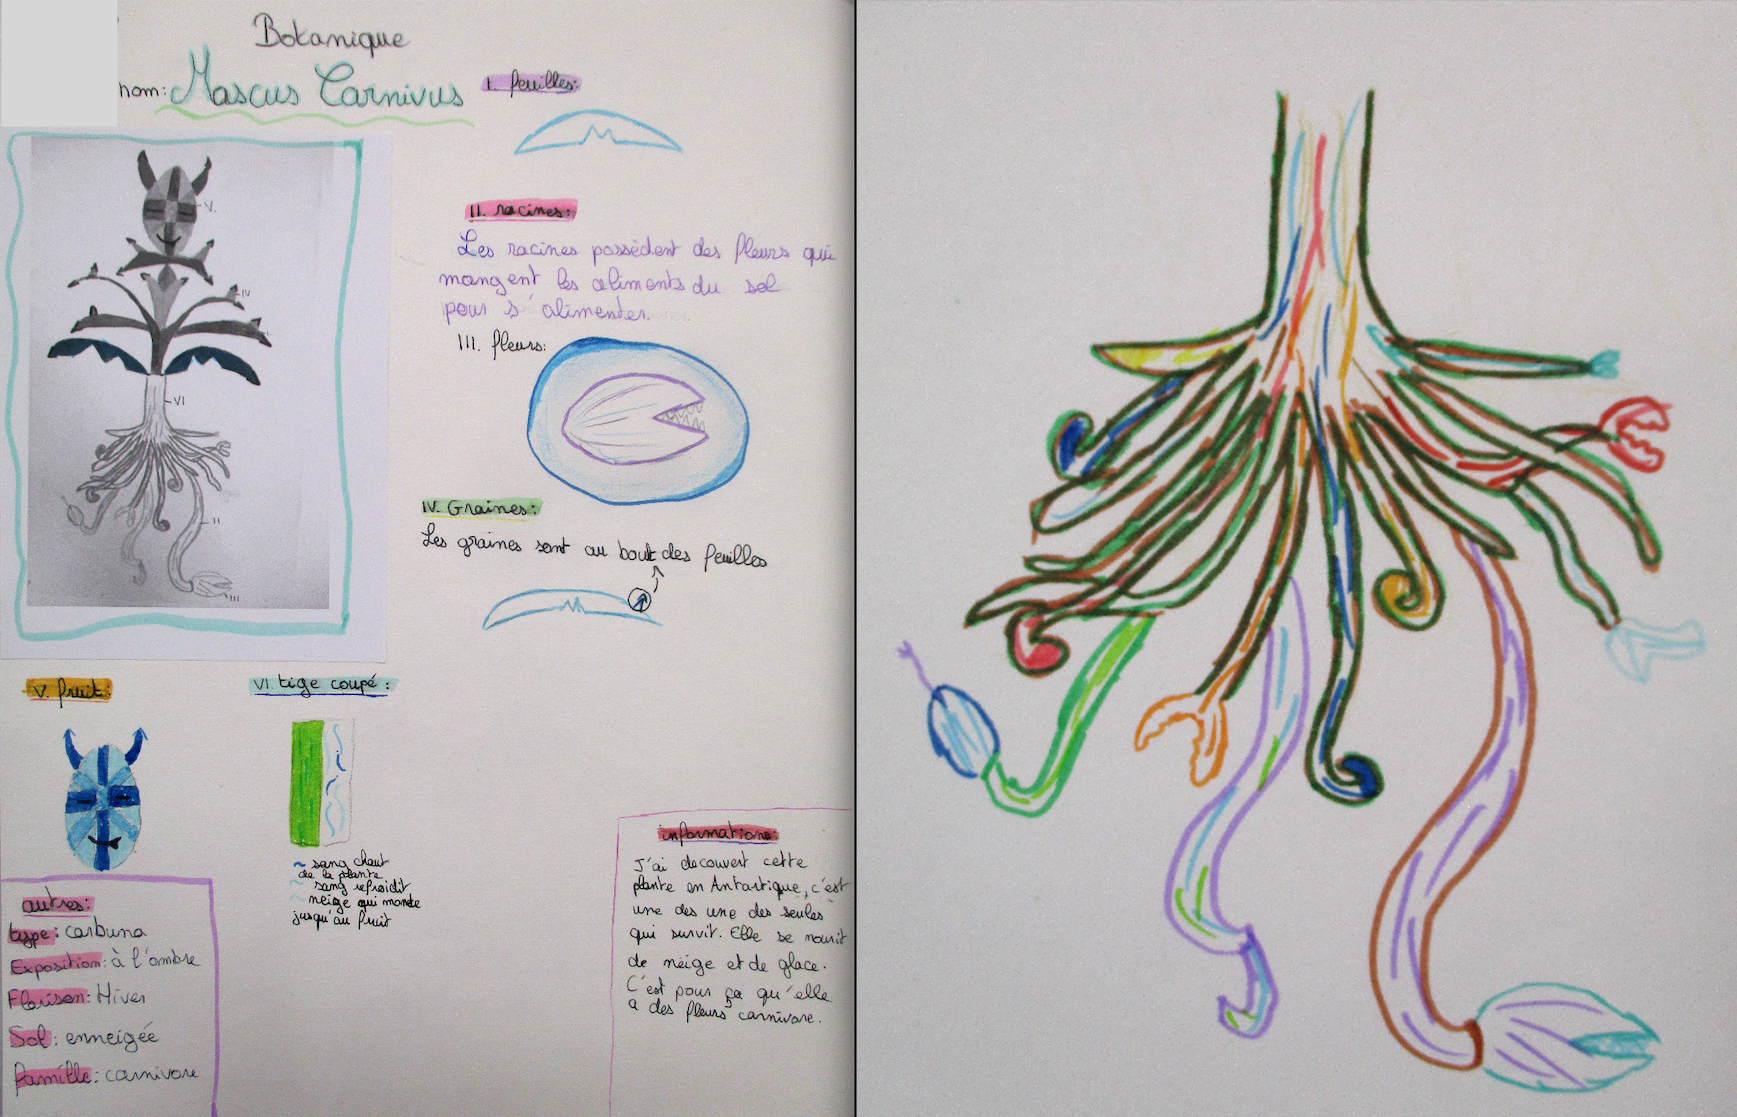 Botanique
nom: Mascus Carnivus
V.
IV
VI
II
III
I. feuilles:
II. racines:
Les racines possèdent des fleurs qui
mangent les aliments du sol
pour s'alimenter.
III. fleurs:
IV. Graines:
Les graines sont au bout des feuilles
V. fruit:
VI. tige coupé:
~ sang chaut
de la plante
~ sang refroidit
~ neige qui monte
jusqu'au fruit
autres:
type: carbuna
Exposition: à l'ombre
Florison: Hiver
Sol: enneigée
famille: carnivore
informations:
J'ai decouvert cette
plante en Antartique, c'est
une des une des seules
qui survit. Elle se nourit
de neige et de glace.
C'est pour ça qu'elle
a des fleurs carnivore.